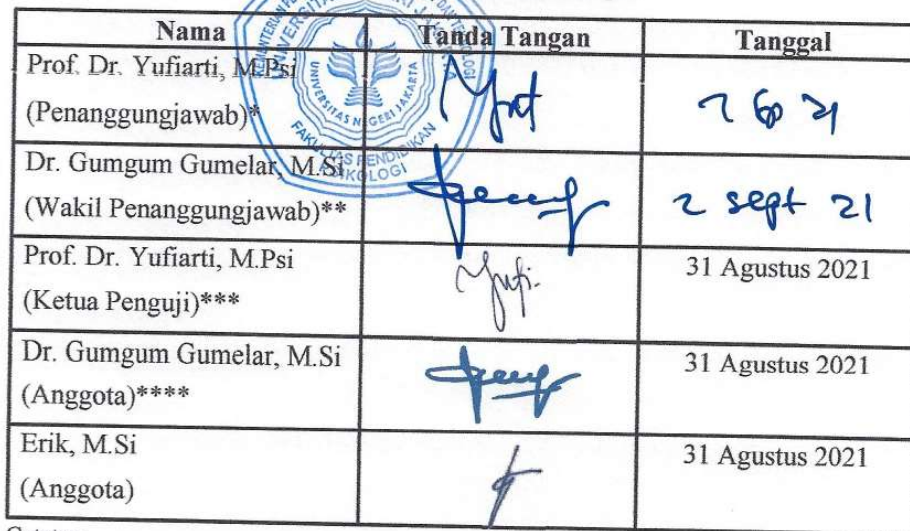 Nama Tanda Tangan Tanggal
Prof. Dr. Yufiarti, M.Psi
(Penanggungjawab)*
Dr. Gumgum Gumelar, M.Si
(Wakil Penanggungjawab)**
2 sept 21
Prof. Dr. Yufiarti, M.Psi
(Ketua Penguji)***
31 Agustus 2021
Dr. Gumgum Gumelar, M.Si
(Anggota)****
31 Agustus 2021
Erik, M.Si
(Anggota)
31 Agustus 2021
UNIVERSITAS NEGERI JAKARTA
FAKULTAS PENDIDIKAN
PSIKOLOGI